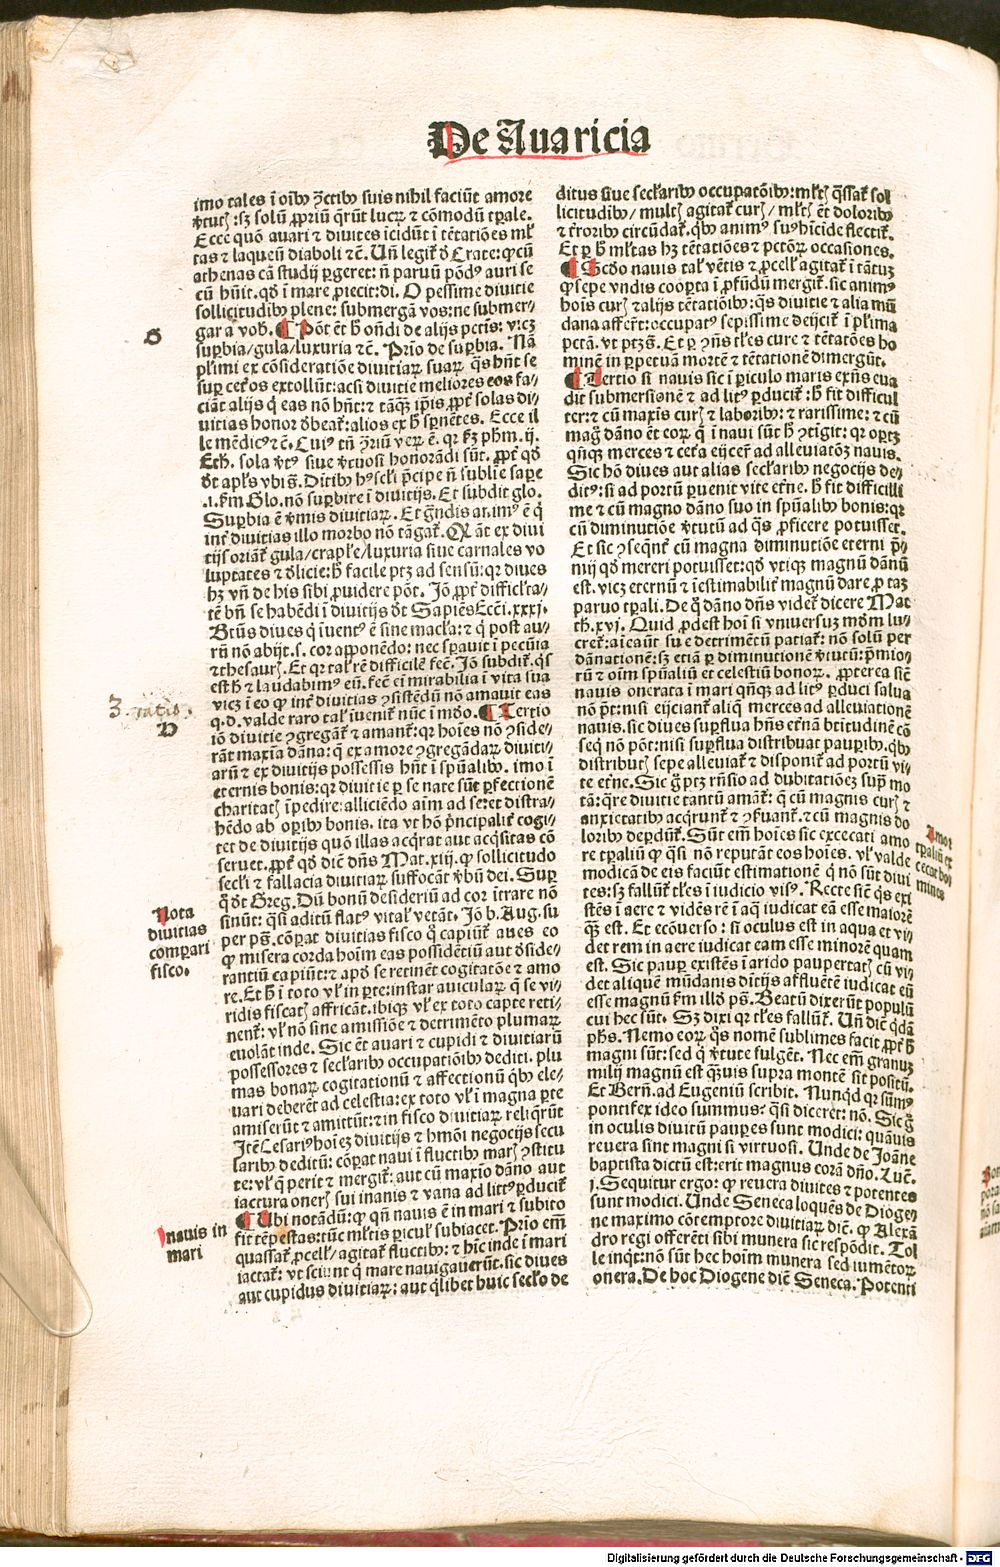 De Auaricia
imo tales ī oībꝰ ꝯctibꝰ suis nihil faciūt amore
ꝟtutꝭ: sꝫ solū ꝓpriū q̄rūt lucꝝ ⁊ cōmodū tꝑale.
Ecce quō auari ⁊ diuites īcidūt ī tētatiōes ml̄
tas ⁊ laqueū diaboli ⁊c̄. Uñ legit᷑ ꝺ Crate: ꝙ cū
athenas cā studij ꝑgeret: ñ paruū pōdꝰ auri se
cū hūit. qꝺ ī mare ꝓiecit: di. O pessime diuitie
sollicitudībꝰ plene: submergā vos: ne submer⸗
gar a vob̄. ¶ Pōt ēt h̄ oñdi de alijs pctīs: vicꝫ
suꝑbia/gula/luxuria ⁊c̄. Prio de suꝑbia. Nā
pl̓imi ex cōsideratiōe diuitiaꝝ suaꝝ qͣs hñt se
suꝑ cet̓os extollūt: acsi diuitie meliores eos fa⸗
ciāt alijs q̇ eas nō hñt: ⁊ tāqͣꝫ ip̄is ꝓpt̓ solas di⸗
uitias honor ꝺbeat᷑: alios ex h̄ sꝑnētes. Ecce il
le mēdicꝰ ⁊c̄. Cuiꝰ tñ ꝯriū veꝝ ē. qꝛ ẜꝫ ph̄m. ij.
Eth. sola ꝟtꝰ siue ꝟtuosi honorādi sūt. ꝓpt̓ qꝺ
ꝺt apl̓s vbi s̄. Diitibꝰ hꝰ scl̓i p̄cipe ñ subl̓ie saꝑe
.i. ẜm Glo. nō suꝑbire ī diuitijs. Et subdit glo.
Suꝑbia ē ꝟmis diuitiaꝝ. Et g̓ndis animꝰ ē q̇
int̓ diuitias illo morbo nō tāgat᷑. Qꝙ āt ex diui
tijs oriāt᷑ gula/crapl̓e/luxuria siue carnales vo
luptates ⁊ ꝺlicie: h̄ facile ptꝫ ad sensū: qꝛ diues
hꝫ vñ de his sibi ꝓuidere pōt. Jō ꝓpt̓ difficl̓ta⸗
tē bñ se habēdi ī diuitijs ꝺt Sapiēs Ecc̄i. xxxj.
Btūs diues q̇ īuentꝰ ē sine macl̓a: ⁊ q̇ post au⸗
rū nō abijt. s. cor apponēdo: nec sꝑauit ī pecūia
⁊ thesaurꝭ. Et qꝛ tal̓ rē difficilē fec̄. Jō subdit᷑. qͥs
est h̄ ⁊ laudabimꝰ eū. fec̄ eī mirabilia ī vita sua
vicꝫ ī eo ꝙ int̓ diuitias ꝯsistēdū nō amauit eas
q. d. valde raro tal̓ īuenit᷑ nūc ī mūdo. ¶ Tertio
iō diuitie ꝯgregāt᷑ ⁊ amant᷑: qꝛ hoīes nō ꝯside⸗
rāt maxīa dāna: q̄ ex amore ꝯgregādaꝝ diuiti⸗
arū ⁊ ex diuitijs possessis hñt ī spūalibꝰ. imo ī
eternis bonis: qꝛ diuitie ꝑ se nate sūt ꝑfectionē
charitatꝭ īpedire: alliciēdo aīm ad se: et distra⸗
hēdo ab oꝑibꝰ bonis. ita vt hō p̄ncipalit᷑ cogi⸗
tet de diuitijs quō illas acq̇rat aut acq̇sitas cō
seruet. ꝓpt̓ qꝺ dic̄ dñs Mat. xiij. ꝙ sollicitudo
secl̓i ⁊ fallacia diuitiaꝝ suffocāt ꝟbū dei. Suꝑ
q̊ ꝺt Greg. Dū bonū desideriū ad cor ītrare nō
sinūt: qͣsi aditū flatꝰ vital̓ vetāt. Jō b. Aug. su
per ps̄. cōꝑat diuitias fisco q̊ capiūt᷑ aues eo
ꝙ misera corda hoīm eas possidētiū aut ꝺside⸗
rantiū capiūt: ⁊ apd̓ se retinēt cogitatōe ⁊ amo
re. Et h̄ ī toto vl̓ in ꝑte: instar auiculaꝝ q̄ se vi⸗
ridis fiscatꝭ affricāt. ibiqꝫ vl̓ ex toto capte reti⸗
nent᷑: vl̓ nō sine amissiōe ⁊ detrimēto plumaꝝ
euolāt inde. Sic ēt auari ⁊ cupidi ⁊ diuitiarū
possessores ⁊ secl̓aribꝰ occupatiōibꝰ dediti. plu
mas bonaꝝ cogitationū ⁊ affectionū qͥbꝰ ele⸗
uari deberēt ad celestia: ex toto vl̓ ī magna ꝑte
amiserūt ⁊ amittūt: ⁊ in fisco diuitiaꝝ reliq̄rūt
Jtē Cesariꝰ hoīeꝫ diuitijs ⁊ hmōi negocijs secu
laribꝰ deditū: cōꝑat naui ī fluctibꝰ marꝭ ꝯstitu
te: vl̓ q̄ perit ⁊ mergit᷑: aut cū maxīo dāno aut
iactura onerꝭ sui inanis ⁊ vana ad littꝰ ꝑducit᷑
¶ Ubi notādū: ꝙ qñ nauis ē in mari ⁊ subito
fit tēpestas: tūc ml̄tis ꝑicul̓ subiacet. Prio em̄
quassat᷑ ꝓcell̓/ agitat᷑ fluctibꝰ: ⁊ hic inde ī mari
iactat᷑: vt sciunt q̇ mare nauigauerūt. sic diues
aut cupidus diuitiaꝝ: aut q̇libet huic secl̓o de
G
3. ratio.
D
Nota
diuitias
comꝑari
fisco.
nauis in
mari
ditus siue secl̓aribꝰ occupatōibꝰ: ml̄tꝭ q̄ssat᷑ sol
licitudībꝰ/ multꝭ agitat᷑ curꝭ/ ml̄tꝭ ēt doloribꝰ
⁊ t̓roribꝰ circūdat᷑. qͥbꝰ animꝰ suꝰ hīcīde flectit᷑.
Et ꝑ h̄ ml̄tas hꝫ tētatiōes ⁊ pctōꝝ occasiones.
¶ Scdo nauis tal̓ vētis ⁊ ꝓcell̓ agitat᷑ ī tātuꝫ
ꝙ sepe vndis cooꝑta ī ꝓfūdū mergit᷑. sic animꝰ
hoīs curꝭ ⁊ alijs tētatiōibꝰ: qͣs diuitie ⁊ alia mū
dana affer̄t: occupatꝰ sepissime deijcit᷑ ī pl̓ima
pctā. vt ptꝫ s̄. Et ꝑ ꝯñs tl̓es cure ⁊ tētatōes ho
minē in ꝑpetuā mortē ⁊ tētationē dimergūt.
¶ Tertio si nauis sic ī ꝑiculo maris exñs eua
dit submersionē ⁊ ad litꝰ ꝑducit᷑: h̄ fit difficul
ter: ⁊ cū maxīs curꝭ ⁊ laboribꝰ: ⁊ rarissime: ⁊ cū
mag̊ dāno ēt eoꝝ q̇ ī naui sūt h̄ ꝯtīgit: qꝛ oꝑtꝫ
qñqꝫ merces ⁊ cet̓a eijcer̄ ad alleuiatōꝫ nauis.
Sic hō diues aut alias secl̓aribꝰ negocijs de⸗
ditꝰ: si ad portū ꝑuenit vite et̓ne. h̄ fit difficilli
me ⁊ cū magno dāno suo in spūalibꝰ bonis: qꝛ
cū diminutiōe ꝟtutū ad qͣs ꝓficere potuisset.
Et sic ꝯseqūt᷑ cū magna diminutiōe eterni p̄⸗
mij qꝺ mereri potuisset: qꝺ vtiqꝫ magnū dānū
est. vicꝫ eternū ⁊ īestimabilit᷑ magnū dare ꝓ tā
paruo tꝑali. De q̊ dāno dñs videt᷑ dicere Mat
th. xvj. Quid ꝓdest hoī si vniuersuꝫ mūdm lu⸗
cret᷑: aīe aūt sue detrimētū patiat᷑: nō solū per
dānationē: sꝫ etiā ꝑ diminutionē ꝟtutū: p̄mio⸗
rū ⁊ oīm spūaliū et celestiū bonoꝝ. ꝓpterea sic̄
nauis onerata ī mari qñqꝫ ad litꝰ ꝑduci salua
nō pōt: nisi eijciant᷑ aliq̄ merces ad alleuiationē
nauis. sic diues suꝑflua hñs et̓nā btītudinē cō
seq̇ nō pōt: nisi suꝑflua distribuat pauꝑibꝰ. qͥbꝰ
distributꝭ sepe alleuiat᷑ ⁊ disponit᷑ ad portū vi⸗
te et̓ne. Sic g̊ ptꝫ rñsio ad dubitatiōeꝫ sup̄ mo
tā: q̄re diuitie tantū amāt᷑: q̄ cū magnis curꝭ ⁊
anxietatibꝰ acq̇runt᷑ ⁊ ꝯẜuant᷑. ⁊ cū magnis do
loribꝰ ꝑdūt᷑. Sūt em̄ hoīes sic excecati amo
re tꝑaliū ꝙ qͣsi nō reputāt eos hoīes. vl̓ valde
modicā de eis faciūt estimationē q̇ nō sūt diui
tes: sꝫ fallūt᷑ tl̓es ī iudicio visꝰ. Recte sic̄ qͥs exi
stēs ī aere ⁊ vidēs rē ī aq̄ iudicat eā esse maiorē
qͣꝫ est. Et ecōuerso: si oculus est in aqua et vi⸗
det rem in aere iudicat eam esse minorē quam
est. Sic pauꝑ existēs ī arido paupertatꝭ cū vi⸗
det aliquē mūdanis diītijs affluētē iudicat eū
esse magnū ẜm illd̓ ps̄. Beatū dixerūt populū
cui hec sūt. Sꝫ dixi qꝛ tl̓es fallūt᷑. Uñ dic̄ qdā
ph̄s. Nemo eoꝝ qͦs nomē sublimes facit ꝓpt̓ h̄
magni sūt: sed q̇ ꝟtute fulgēt. Nec em̄ granuꝫ
milij magnū est qͣꝫuis supra montē sit positū.
Et Bern̄. ad Eugeniū scribit. Nunqd̓ qꝛ sūmꝰ
pontifex ideo summus? qͣsi diceret: nō. Sic g̊
in oculis diuitū pauꝑes sunt modici: quāuis
reuera sint magni si virtuosi. Unde de Joāne
baptista dictū est: erit magnus corā dño. Luc̄.
j. Sequitur ergo: ꝙ reuera diuites ⁊ potentes
sunt modici. Unde Seneca loquēs de Diogen
ne maximo cōtemptore diuitiaꝝ dic̄. ꝙ Alexā
dro regi offerēti sibi munera sic respōdit. Tol
le inqͣt: nō sūt hec hoīm munera sed iumētoꝝ
onera. De hoc Diogene dic̄ Seneca. Potenti
Amor
tꝑaliū ex
cecat ho
mines